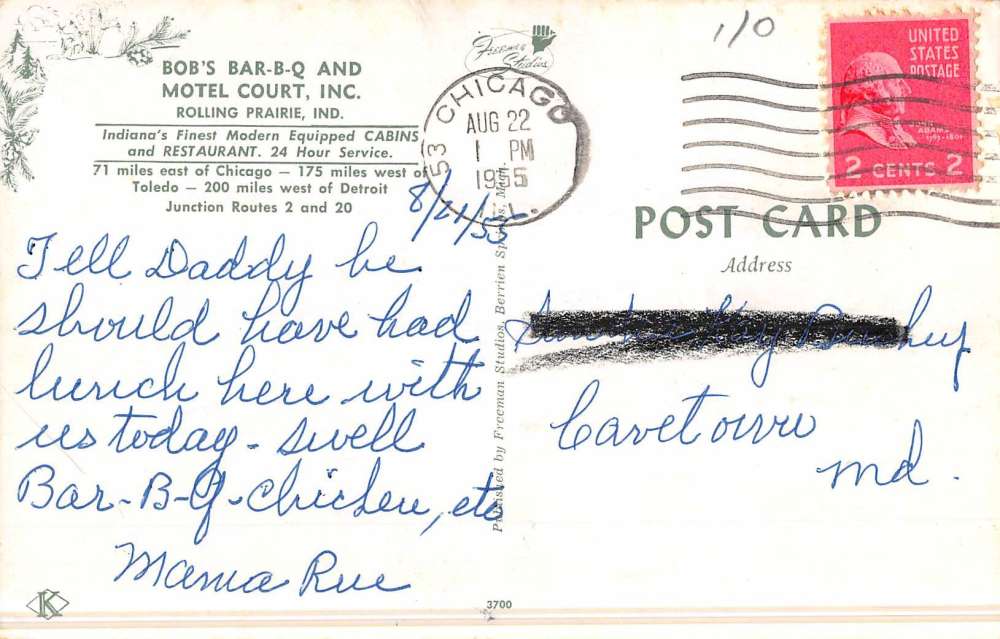 BOB'S BAR-B-Q AND
MOTEL COURT, INC.
ROLLING PRAIRIE, IND.
Indiana's Finest Modern Equipped CABINS
and RESTAURANT. 24 Hour Service.
71 miles east of Chicago — 175 miles west of
Toledo — 200 miles west of Detroit
Junction Routes 2 and 20
8/21/55
Tell Daddy he
should have had
lunch here with
us today - swell
Bar-B-Q-chicken, etc
Mama Rue
K
Freeman
Studios
CHICAGO
53
AUG 22
1 PM
1955
ILL.
Published by Freeman Studios, Berrien Springs, Mich.
3700
1/0
UNITED
STATES
POSTAGE
ADAMS
2 CENTS 2
POST CARD
Address
Kay
Cavetown
Md.